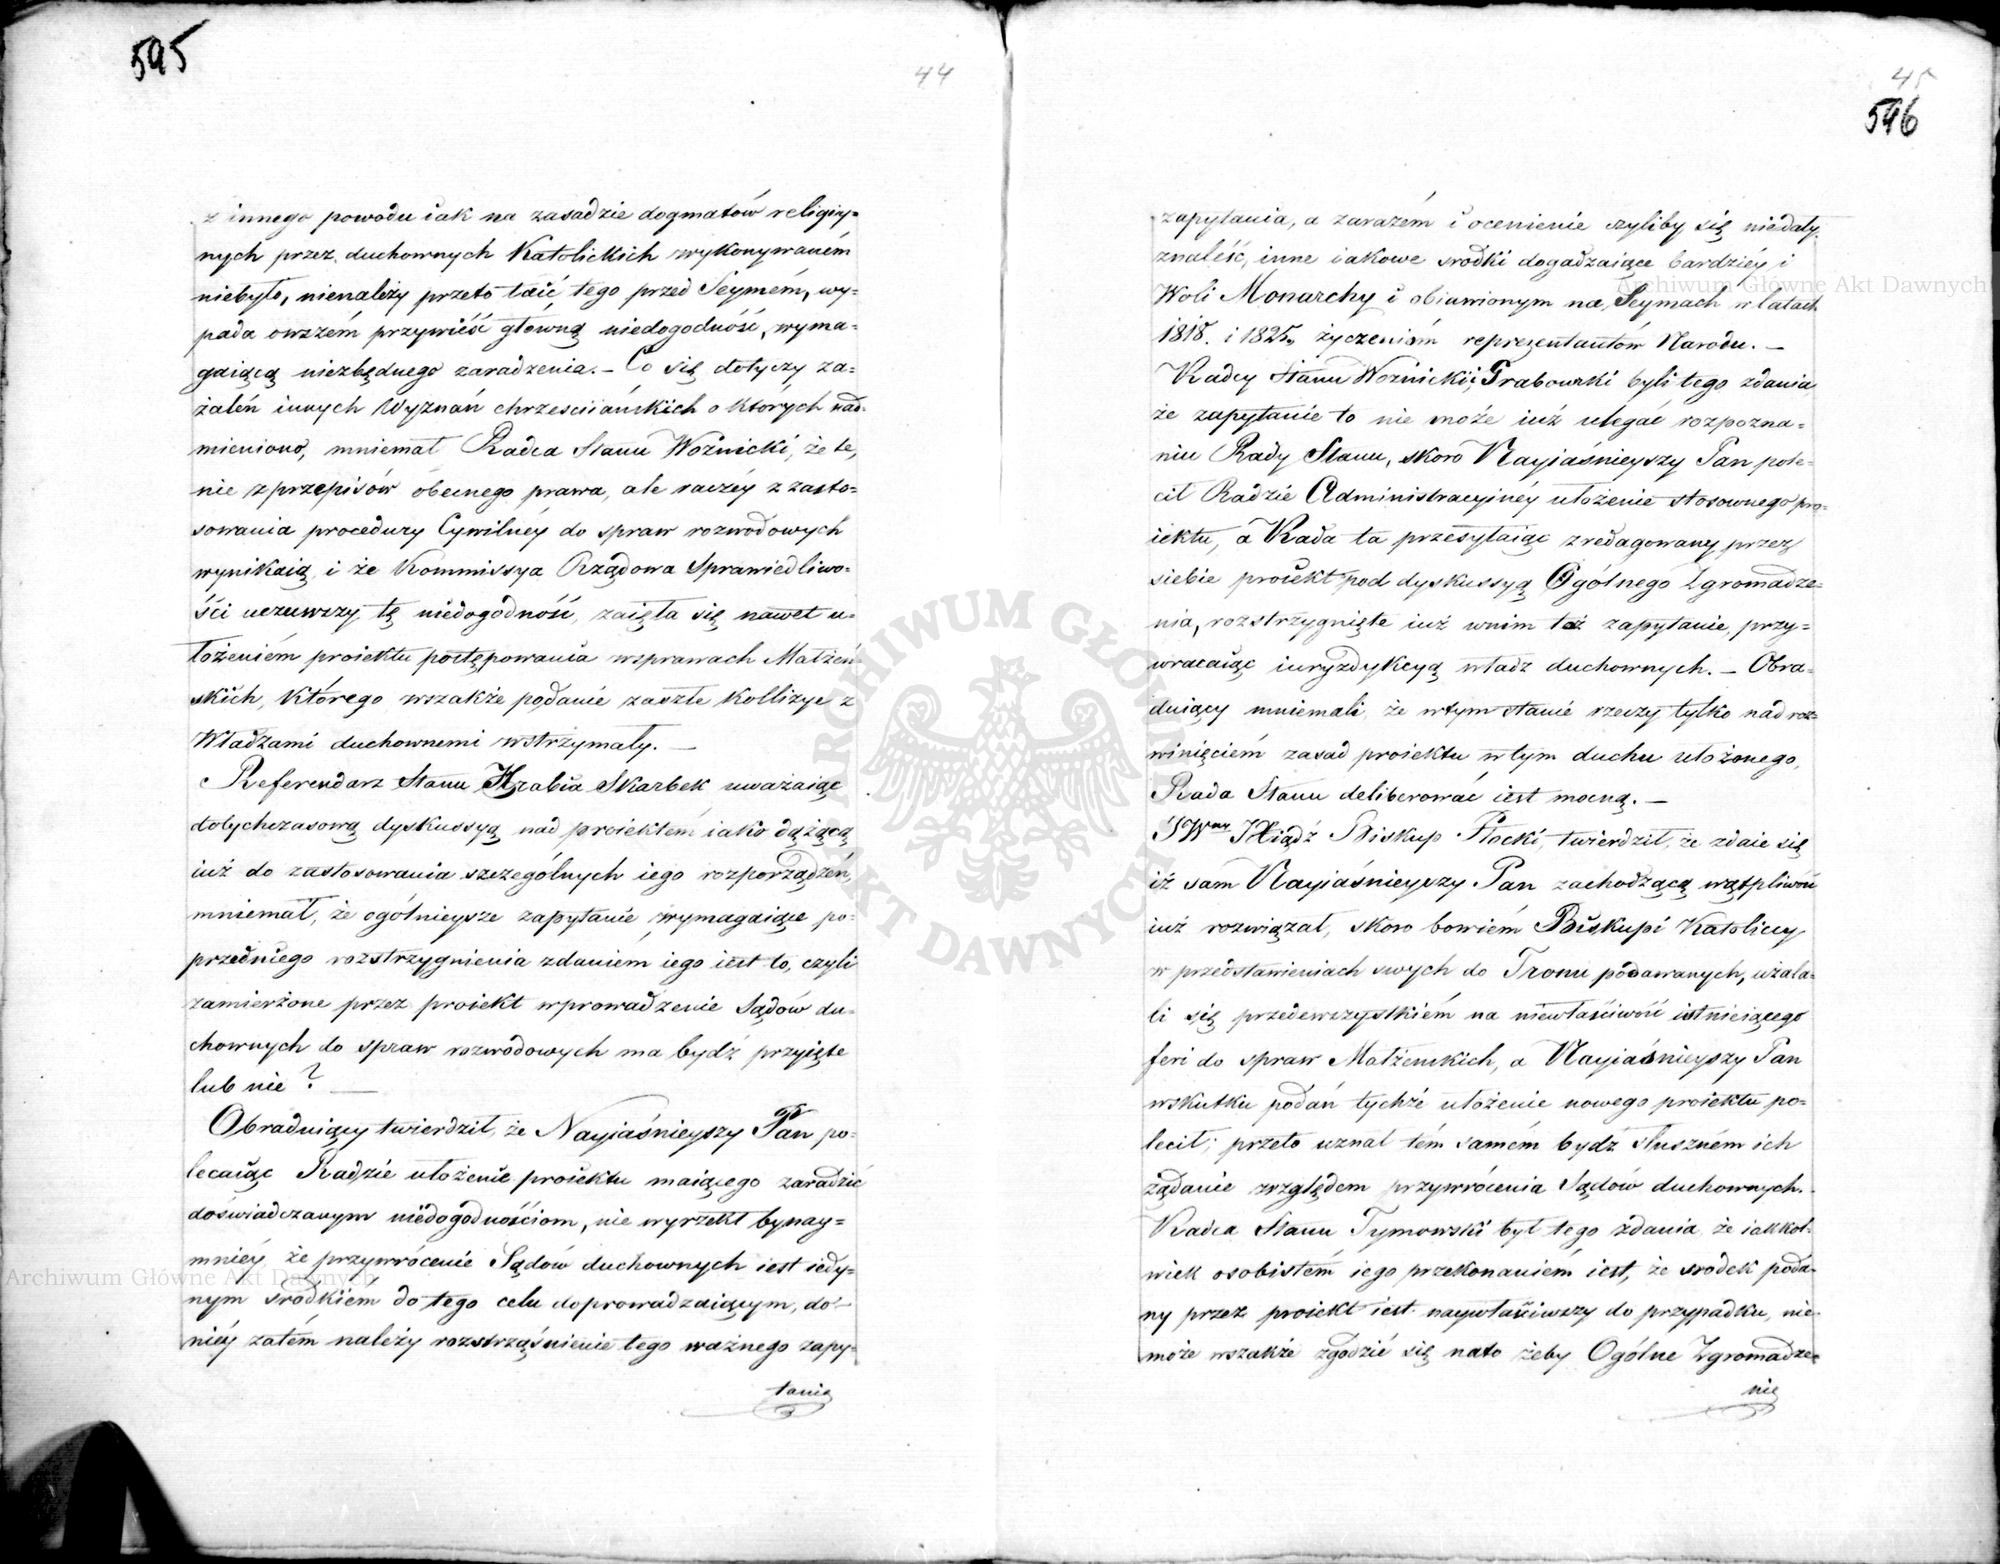 595
44
z innego powodu iak na zasadzie dogmatów religiy=
nych przez duchownych Katolickich wykonywaném
niebyło, nienależy przeto taić tego przed Seymém, wy=
pada owszém przywieść główną niedogodność, wyma=
gaiącą niezbędnego zaradzenia. – Co się dotyczy za=
żaleń innych Wyznań chrześciiańskich o których nad=
mieniono, mniemał Radca Stanu Woźnicki, że te,
nie z przepisów obecnego prawa, ale raczéy z zasto=
sowania procedury Cywilnéy do spraw rozwodowych
wynikaią, i że Kommissya Rządowa Sprawiedliwo=
ści uczuwszy tę niedogodność, zaięła się nawet u=
łożeniém proiektu postępowania wsprawach Małżeń=
skich, którego wszakże podanie zaszłe kollizye z
Władzami duchownemi wstrzymały. —
Referendarz Stanu Hrabia Skarbek uważaiąc
dotychczasową dyskussyą nad proiektém iako dążącą
iuż do zastosowania szczególnych iego rozporządzeń,
mniemał, że ogólnieysze zapytanie wymagaiące po=
przedniego rozstrzygnienia zdaniém iego iest to, czyli
zamierżone przez proiekt wprowadzenie Sądów du=
chownych do spraw rozwodowych ma bydź przyięte
lub nie? —
Obraduiący twierdził, że Nayiaśnieyszy Pan po=
lecaiąc Radzie ułożenie proiektu maiącego zaradzić
doświadczanym niedogodnościom, nie wyrzekł bynay=
mniéy że przywrócenie Sądów duchownych iest iedy=
nym środkiém do tego celu doprowadzaiącym, do
niéy zatém należy rozstrząśnienie tego ważnego zapy=
tania
45
596
zapytania, a zarazém i ocenienie czyliby się niedały
znaleść, inne iakowe srodki dogadzaiące bardziéy i
Woli Monarchy i obiawionym na Seymach w latach
1818. i 1825, życzeniom reprezentantów Narodu. —
Radcy Stanu Woźnicki i Grabowski byli tego zdania
że zapytanie to nie może iuż ulegać rozpozna=
niu Rady Stanu, skoro Nayiaśnieyszy Pan pole=
cił Radzie Administracyjnéy ułożenie stosownego pro=
iektu, a Rada ta przesyłaiąc zredagowany przez
siebie proiekt pod dyskussyą Ogólnego Zgromadze=
nia, rozstrzygnięte iuż wnim toż zapytanie, przy=
wracaiąc iuryzdykcyą władz duchownych. — Obra=
duiący mniemali, że wtym stanie rzeczy tylko nad roz=
winięciém zasad proiektu w tym duchu ułożonego,
Rada Stanu deliberować iest mocną. —
JWny JXiądz Biskup Płocki, twierdził, że zdaie się
iż sam Nayiaśnieyszy Pan zachodzącą wątpliwość
iuż rozwiązał, skoro bowiém Biskupi Katoliccy
w przedstawieniach swych do Tronu podawanych, użala=
li się przedewszystkiém na niewłaściwość istnieiącego
fori do spraw Małżenskich, a Nayiaśnieyszy Pan
wskutku podań tychże ułożenie nowego proiektu po=
lecił; przeto uznał tém samém bydź słuszném ich
żądanie względem przywrócenia Sądów duchownych.
Radca Stanu Tymowski był tego zdania że iakkol=
wiek osobistém iego przekonaniém iest, że srodek poda=
ny przez proiekt iest naywłaściwszy do przypadku, nie=
może wszakże zgodzić się nato żeby Ogólne Zgromadze=
nie
ARCHIWUM GŁÓWNE AKT DAWNYCH
Archiwum Główne Akt Dawnych
Archiwum Główne Akt Dawnych